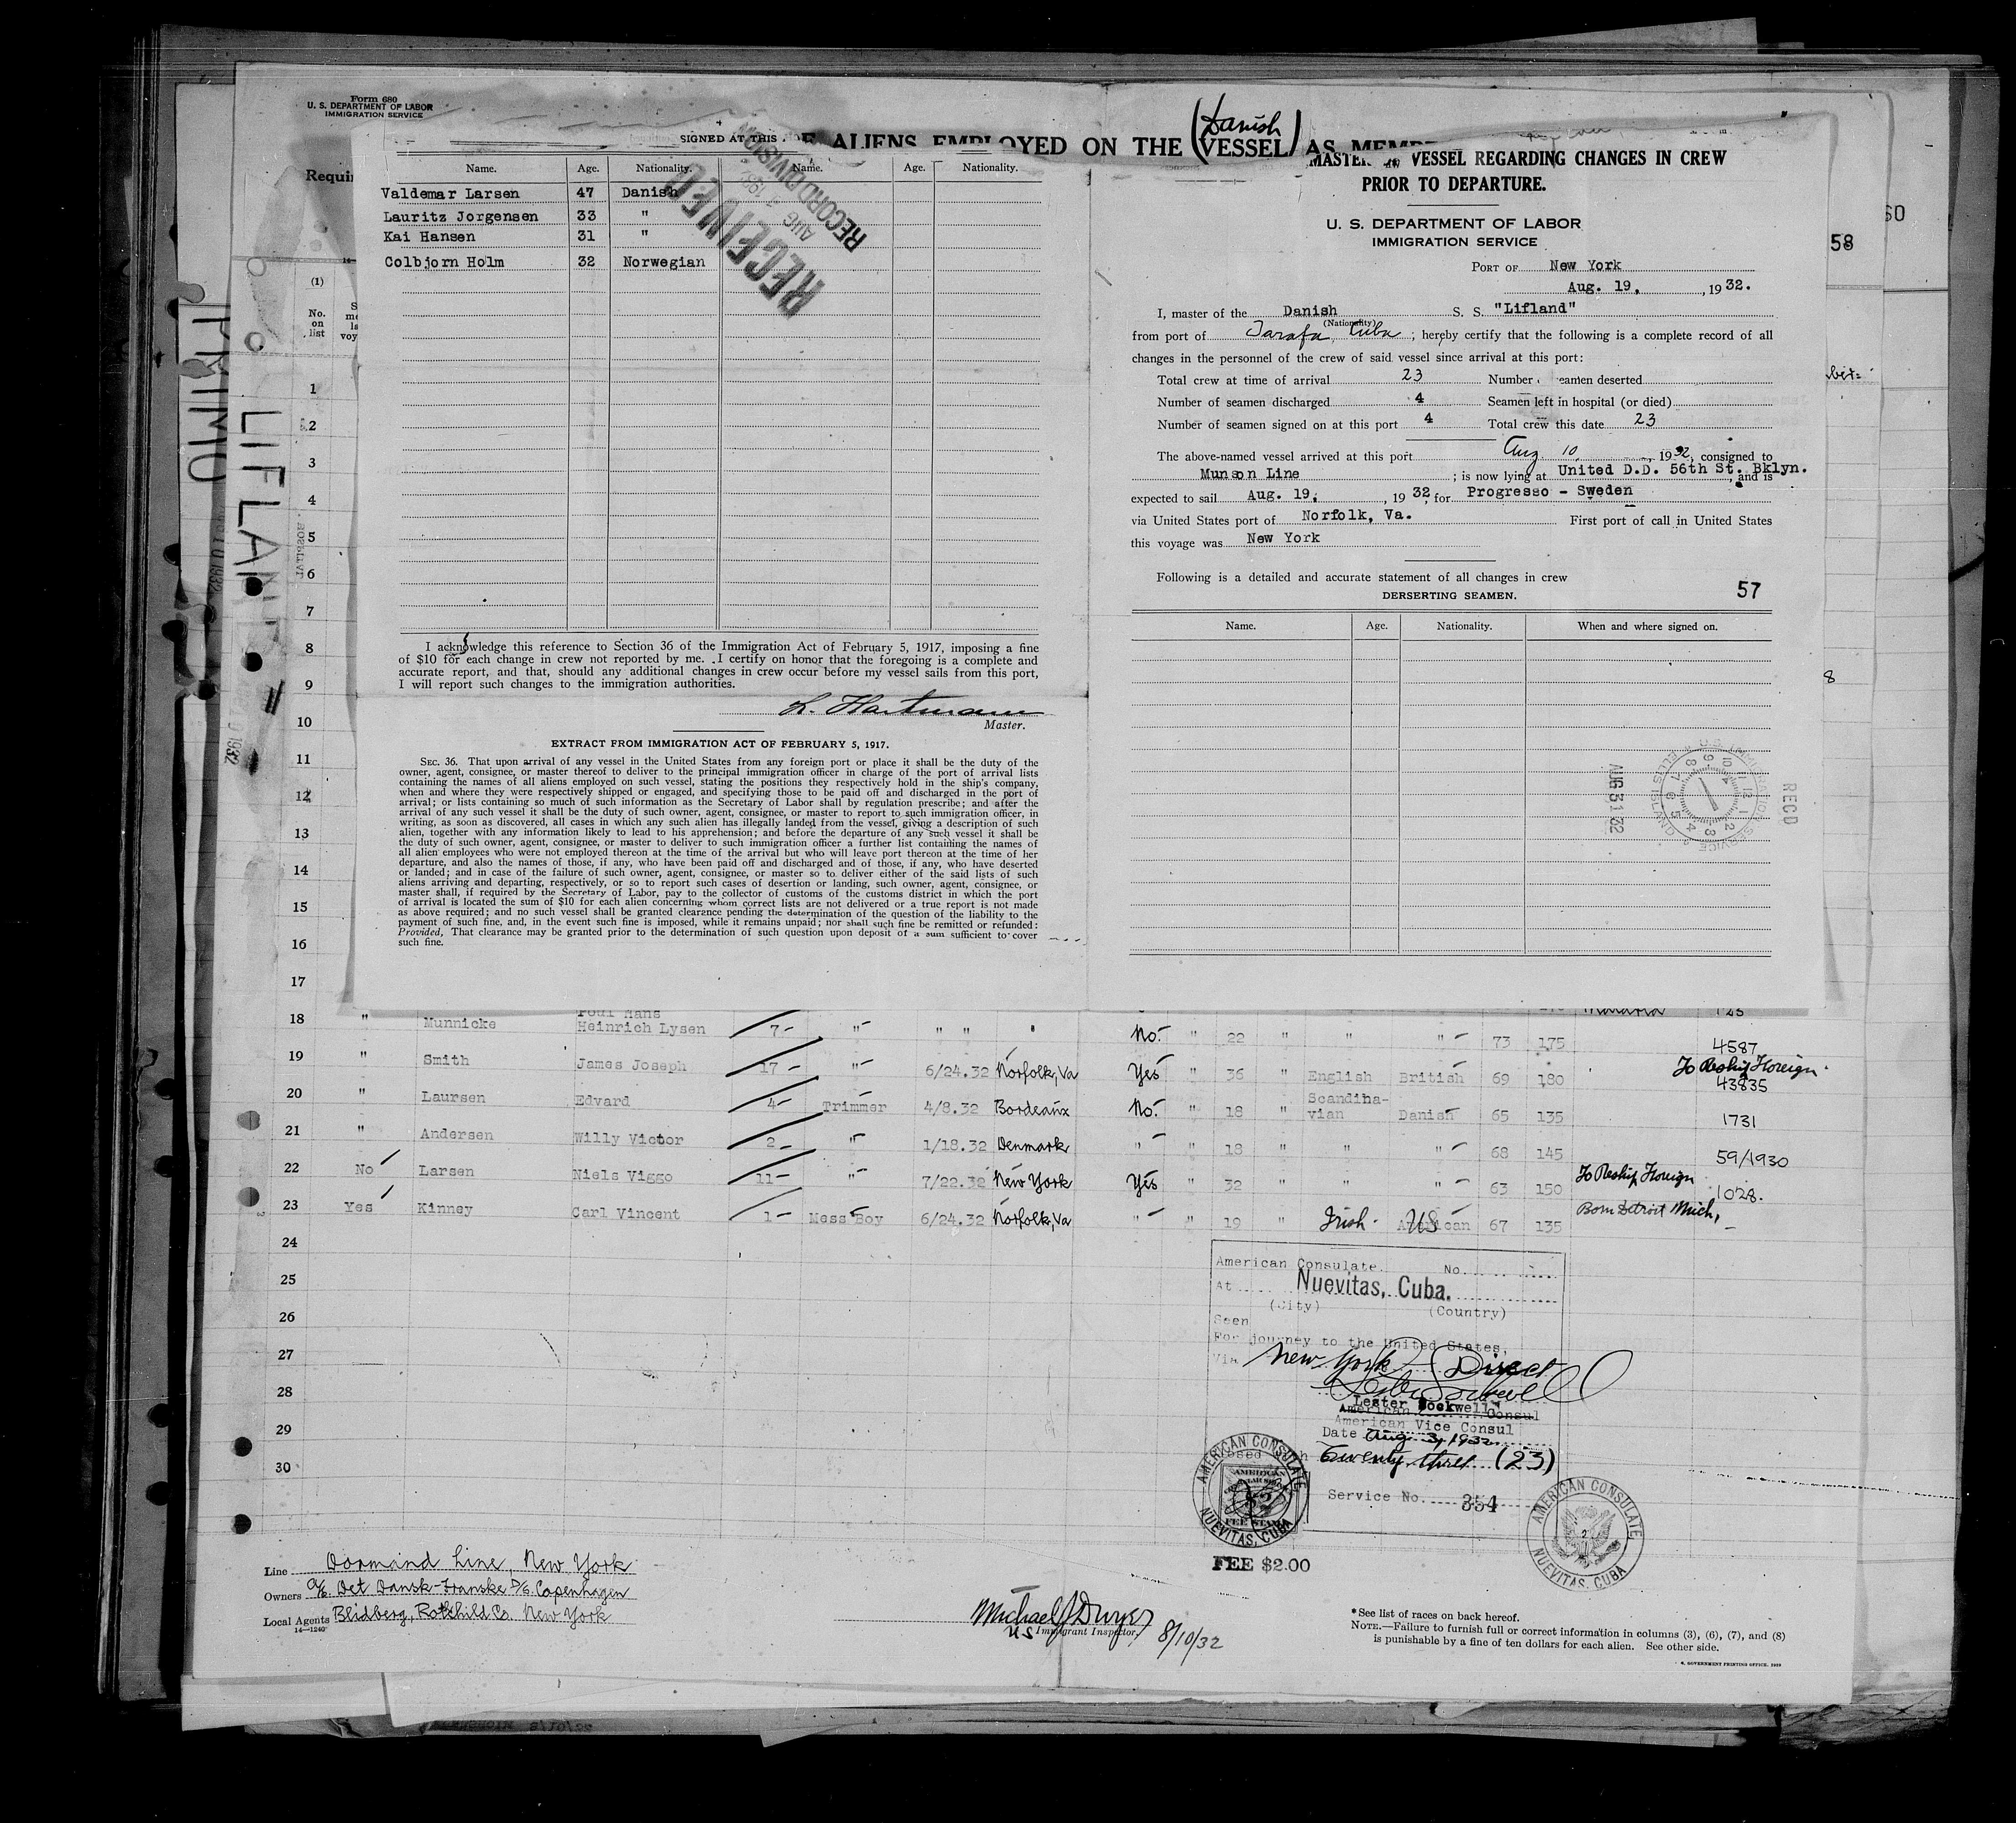 Form 680
U. S. DEPARTMENT OF LABOR
IMMIGRATION SERVICE
ALIENS EMPLOYED ON THE (VESSEL) AS MEMB
Danish
Requi
(1)
No.
on
list
SIGNED AT THIS
Name. Age. Nationality. Name. Age. Nationality.
Valdemar Larsen 47 Danish
Lauritz Jorgensen 33 "
Kai Hansen 31 "
Colbjorn Holm 32 Norwegian
RECEIVED
AUG 3 193
RECORD DIVISION
I acknowledge this reference to Section 36 of the Immigration Act of February 5, 1917, imposing a fine
of $10 for each change in crew not reported by me. I certify on honor that the foregoing is a complete and
accurate report, and that, should any additional changes in crew occur before my vessel sails from this port,
I will report such changes to the immigration authorities.
L. Hartmann
Master.
EXTRACT FROM IMMIGRATION ACT OF FEBRUARY 5, 1917.
SEC. 36. That upon arrival of any vessel in the United States from any foreign port or place it shall be the duty of the
owner, agent, consignee, or master thereof to deliver to the principal immigration officer in charge of the port of arrival lists
containing the names of all aliens employed on such vessel, stating the positions they respectively hold in the ship's company,
when and where they were respectively shipped or engaged, and specifying those to be paid off and discharged in the port of
arrival; or lists containing so much of such information as the Secretary of Labor shall by regulation prescribe; and after the
arrival of any such vessel it shall be the duty of such owner, agent, consignee, or master to report to such immigration officer, in
writing, as soon as discovered, all cases in which any such alien has illegally landed from the vessel, giving a description of such
alien, together with any information likely to lead to his apprehension; and before the departure of any such vessel it shall be
the duty of such owner, agent, consignee, or master to deliver to such immigration officer a further list containing the names of
all alien employees who were not employed thereon at the time of the arrival but who will leave port thereon at the time of her
departure, and also the names of those, if any, who have been paid off and discharged and of those, if any, who have deserted
or landed; and in case of the failure of such owner, agent, consignee, or master so to deliver either of the said lists of such
aliens arriving and departing, respectively, or so to report such cases of desertion or landing, such owner, agent, consignee, or
master shall, if required by the Secretary of Labor, pay to the collector of customs of the customs district in which the port
of arrival is located the sum of $10 for each alien concerning whom correct lists are not delivered or a true report is not made
as above required; and no such vessel shall be granted clearance pending the determination of the question of the liability to the
payment of such fine, and, in the event such fine is imposed, while it remains unpaid; nor shall such fine be remitted or refunded:
Provided, That clearance may be granted prior to the determination of such question upon deposit of a sum sufficient to cover
such fine.
MASTER VESSEL REGARDING CHANGES IN CREW
PRIOR TO DEPARTURE.
U. S. DEPARTMENT OF LABOR
IMMIGRATION SERVICE
PORT OF New York
Aug. 19, , 1932.
I, master of the Danish S. S. "Lifland"
(Nationality)
from port of Tarafa, Cuba ; hereby certify that the following is a complete record of all
changes in the personnel of the crew of said vessel since arrival at this port:
Total crew at time of arrival 23 Number seamen deserted
Number of seamen discharged 4 Seamen left in hospital (or died)
Number of seamen signed on at this port 4 Total crew this date 23
The above-named vessel arrived at this port Aug. 10, , 1932, consigned to
Munson Line ; is now lying at United D.D. 56th St. Bklyn. , and is
expected to sail Aug. 19, , 1932, for Progresso - Sweden
via United States port of Norfolk, Va. First port of call in United States
this voyage was New York
Following is a detailed and accurate statement of all changes in crew
57
DERSERTING SEAMEN.
Name. Age. Nationality. When and where signed on.
AUG 31 32
REC'D
ELLIS ISLAND
58
8
LIFLAND
1
2
3
4
5
6
7
8
9
10
11
12
13
14
15
16
17
18 " Munnicke Poul Hans Heinrich Lysen 7 " " " " No. " 22 " " " 73 175 4587
19 " Smith James Joseph 17 " 6/24.32 Norfolk, Va Yes " 36 " English British 69 180 To Reship Foreign 43835
20 " Laursen Edvard 4 Trimmer 4/8.32 Bordeaux No. " 18 " Scandina-vian Danish 65 135 1731
21 " Andersen Willy Victor 2 " 1/18.32 Denmark " " 18 " " " 68 145 59/1930
22 No Larsen Niels Viggo 11 " 7/22.32 New York Yes " 32 " " " 63 150 To Reship Foreign 1028.
23 Yes Kinney Carl Vincent 1 Mess Boy 6/24.32 Norfolk, Va " " 19 " Irish US American 67 135 Born Detroit Mich, -
24
25
26
27
28
29
30
American Consulate. No.
At Nuevitas, Cuba.
(City) (Country)
Seen
For journey to the United States,
Via New York Direct
Lester Sockwell
American Consul
American Vice Consul
Date Aug. 3, 1932
Twenty three (23)
Service No. 354
AMERICAN CONSULATE
NUEVITAS, CUBA
AMERICAN
FEE STAMP
FEE $2.00
AMERICAN CONSULATE
NUEVITAS, CUBA
Line Dormind Line, New York
Owners A/S. Det Dansk-Franske D/S. Copenhagen
Local Agents Blidberg, Rothchild Co. New York
14—1240
Michael J Dwyer
US Immigrant Inspector. 8/10/32
*See list of races on back hereof.
NOTE.—Failure to furnish full or correct information in columns (3), (6), (7), and (8)
is punishable by a fine of ten dollars for each alien. See other side.